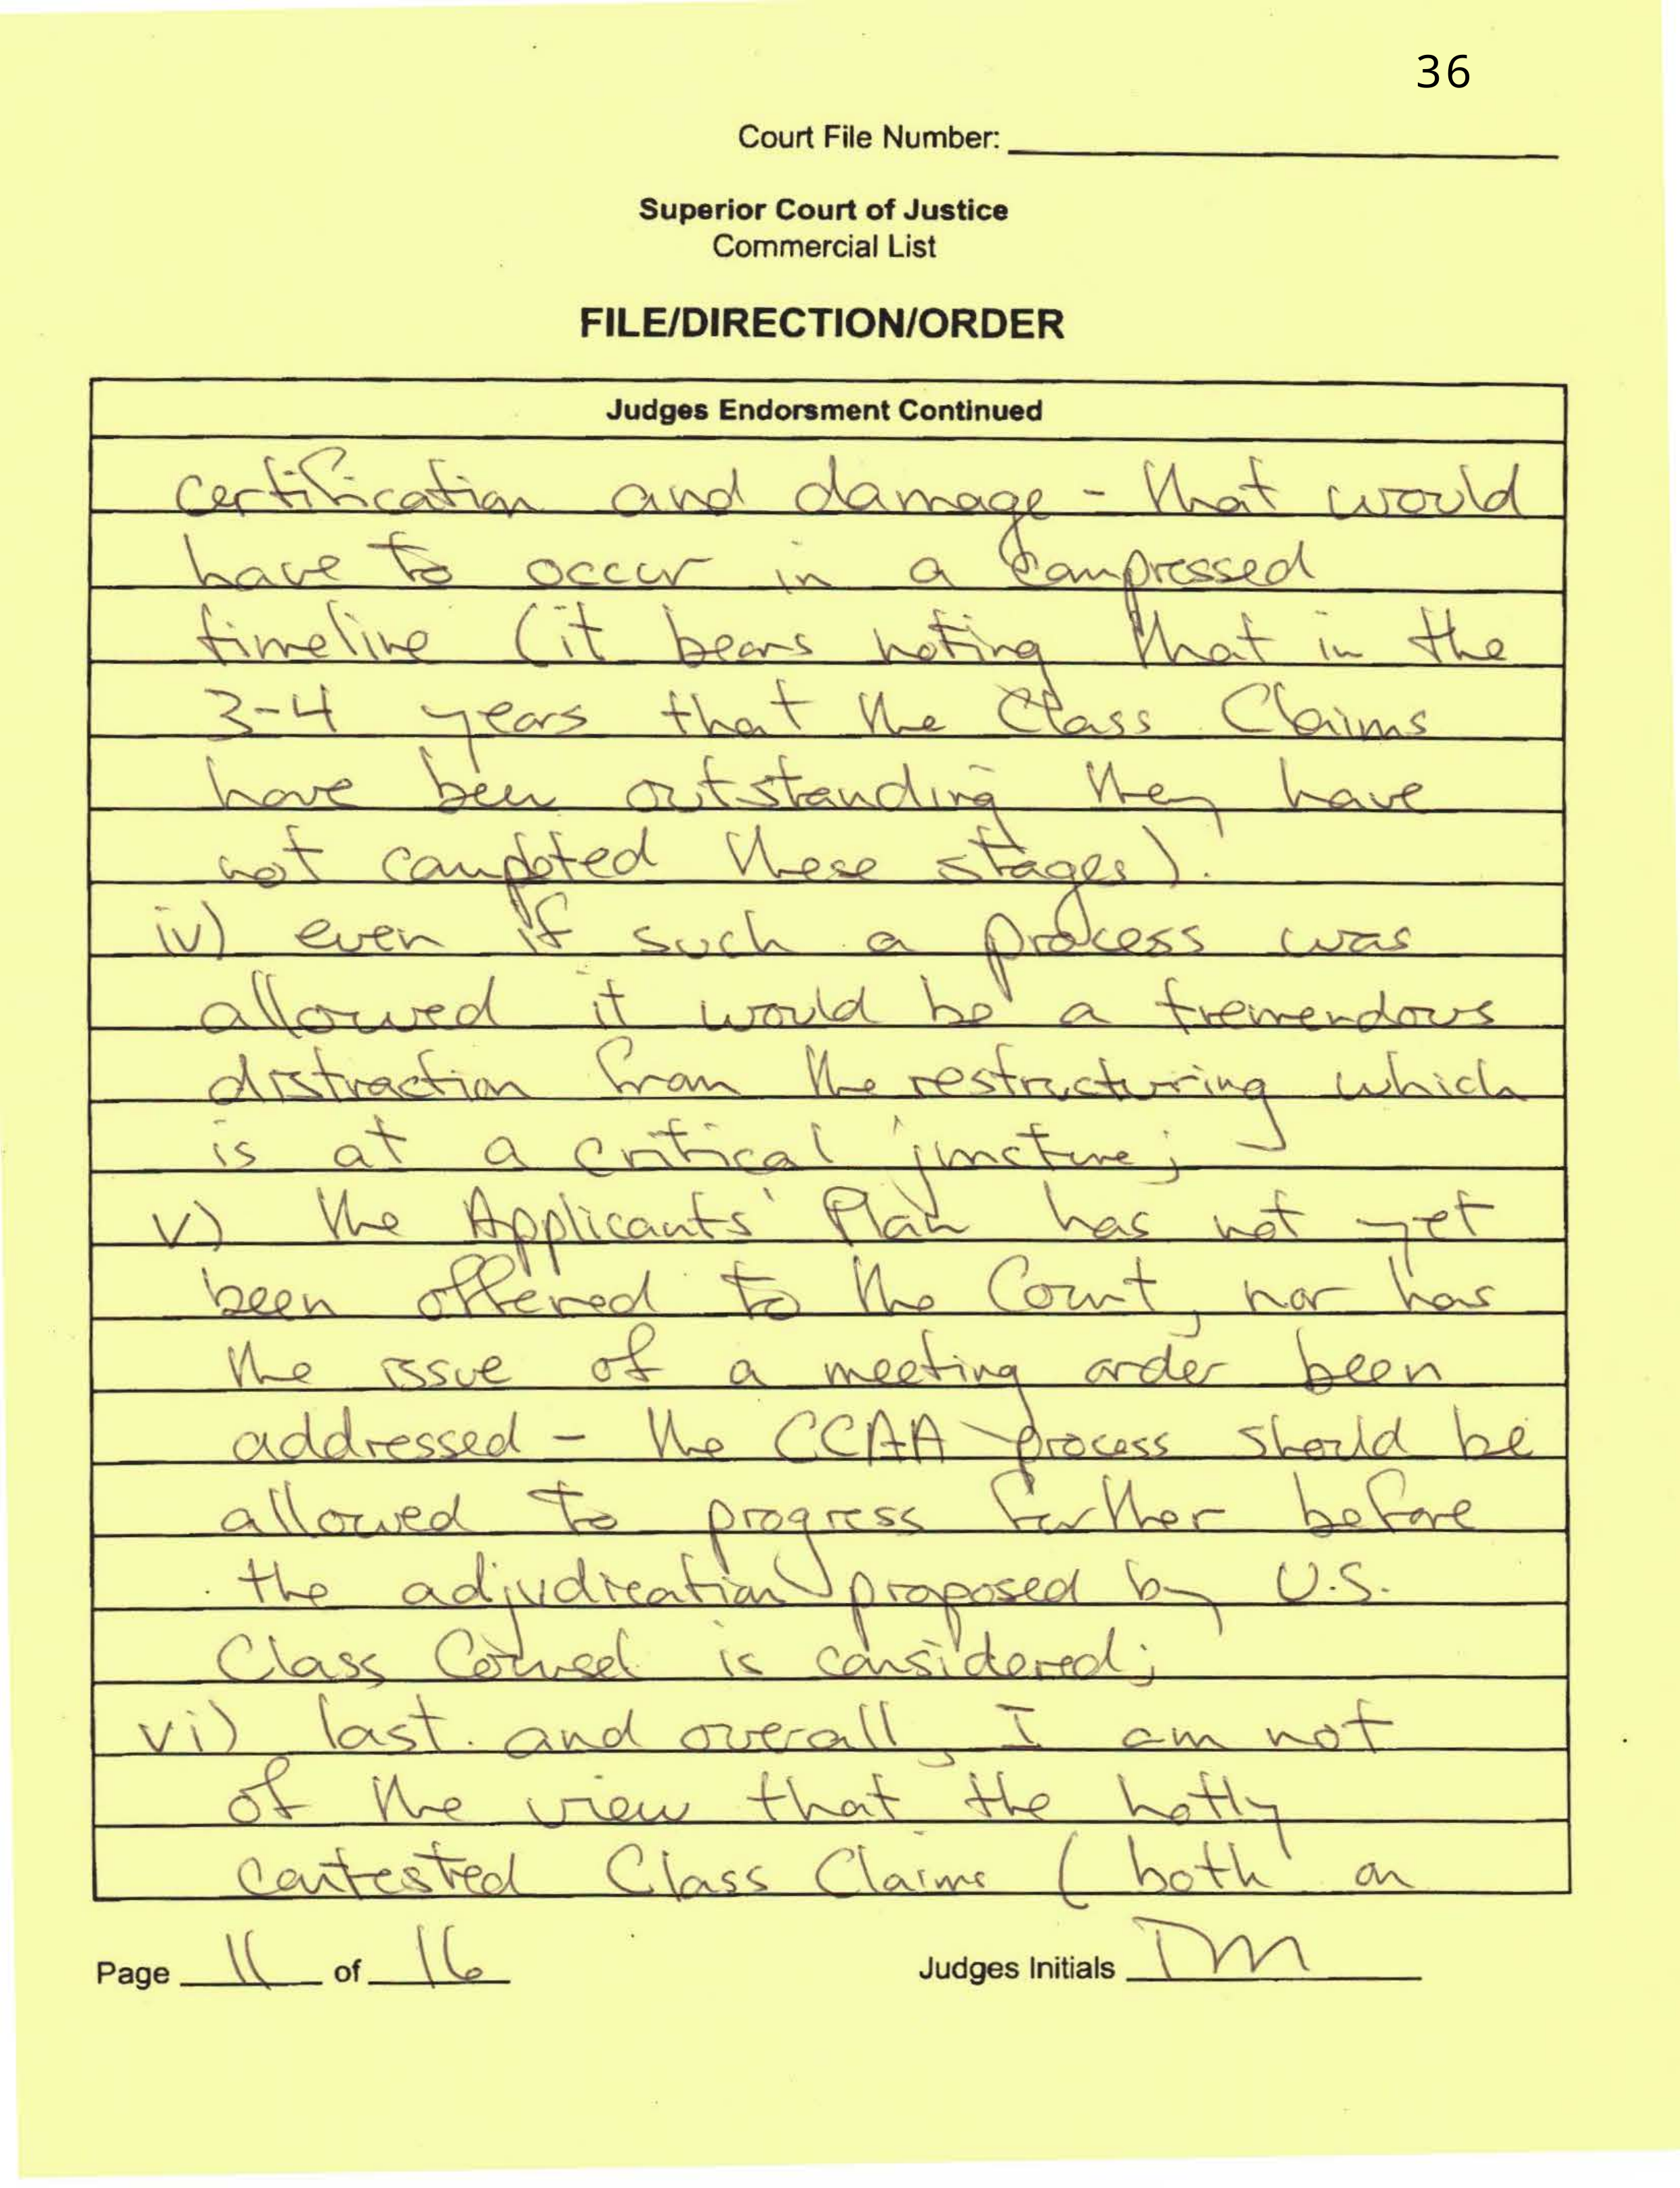 36
Court File Number:
Superior Court of Justice
Commercial List
FILE/DIRECTION/ORDER
Judges Endorsment Continued
certification and damage - that would
have to occur in a compressed
timeline (it bears noting that in the
3-4 years that the Class Claims
have been outstanding they have
not completed these stages).
iv) even if such a process was
allowed it would be a tremendous
distraction from the restructuring which
is at a critical juncture;
v) the Applicants' Plan has not yet
been offered to the Court, nor has
the issue of a meeting order been
addressed - the CCAA process should be
allowed to progress further before
the adjudication proposed by U.S.
Class Counsel is considered;
vi) last and overall, I am not
of the view that the hotly
contested Class Claims (both on
Page 11 of 16 Judges Initials TM